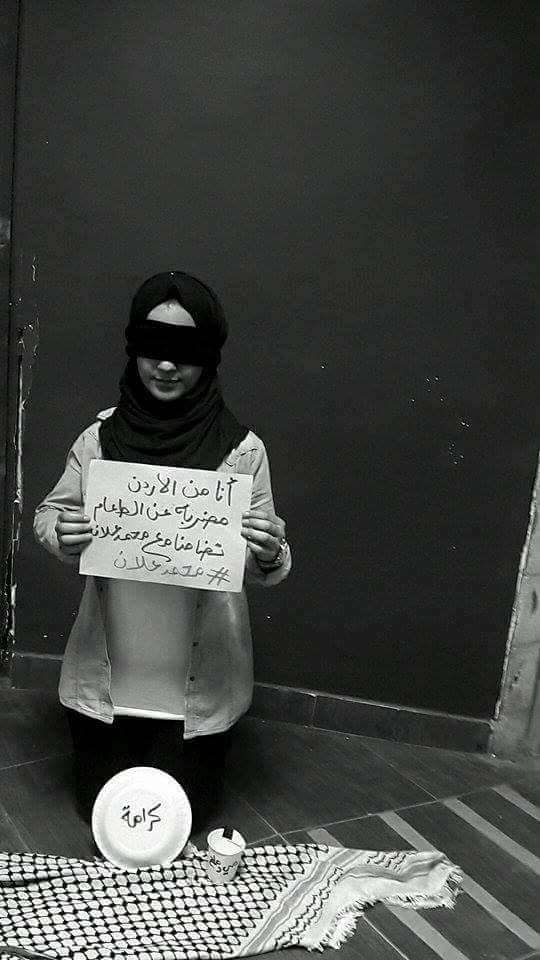 أنا من الأردن
مضربة عن الطعام
تضامنا مع محمد علان
#محمد علان
كرامة